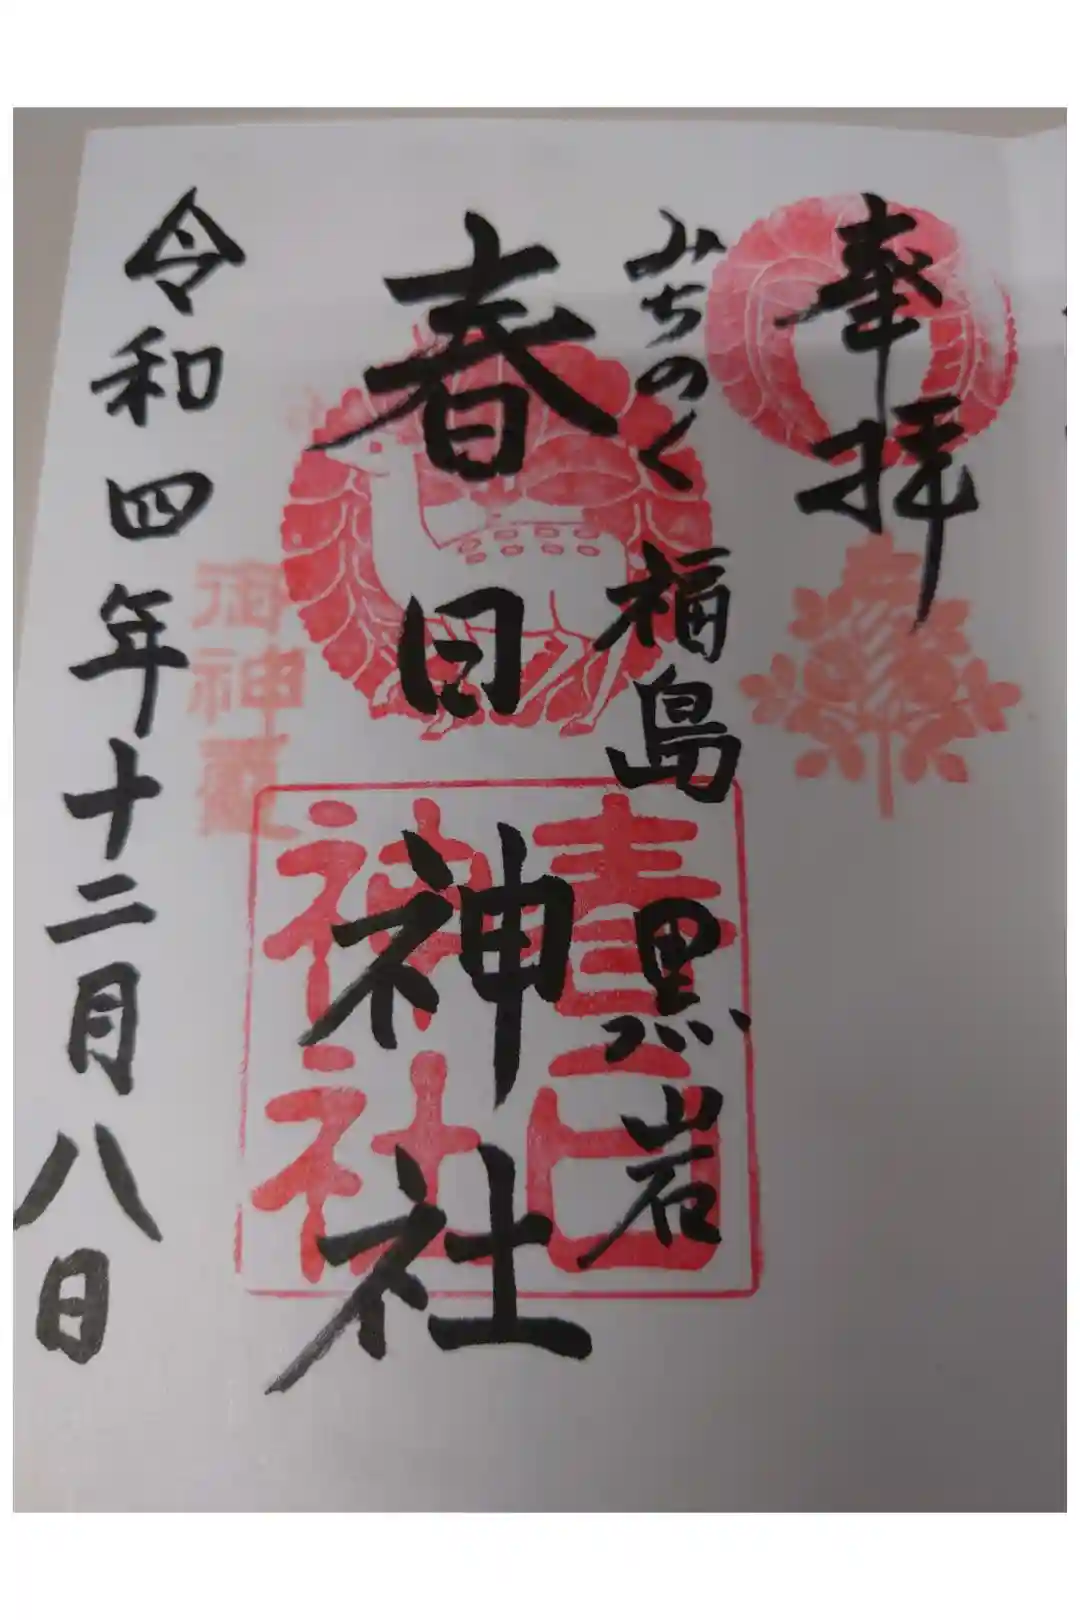 奉拝
みちのく 福島 黒岩
春日神社
春日
神社
令和四年十二月八日